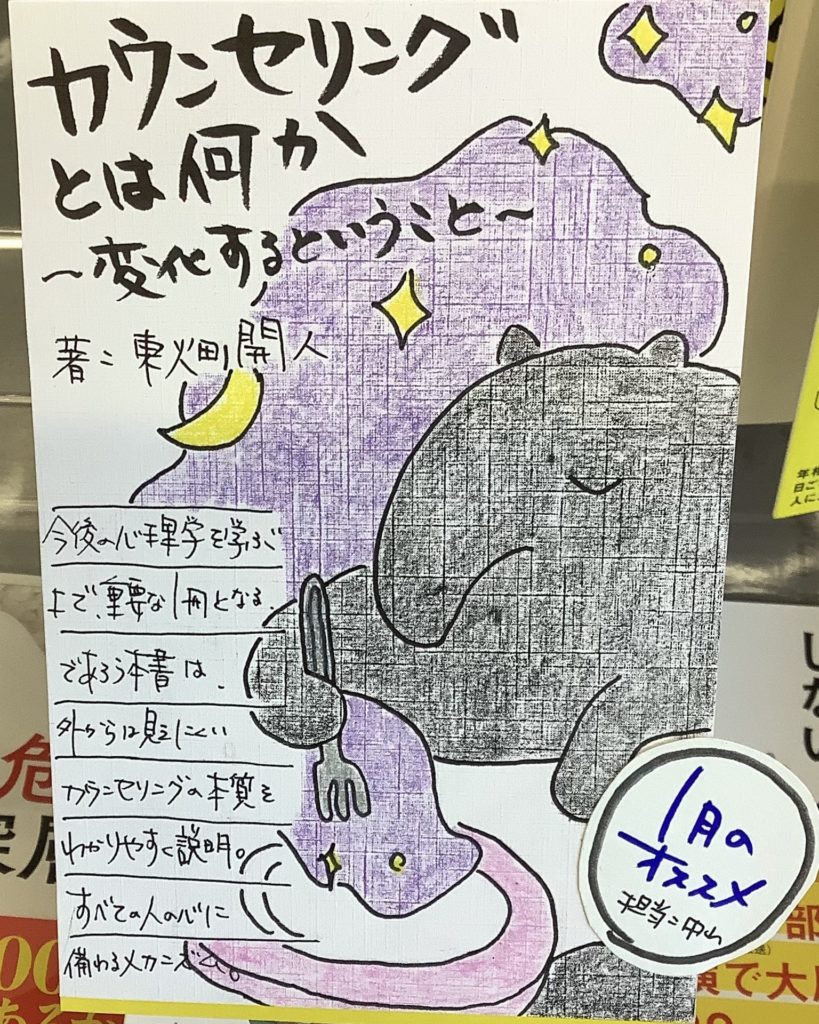 カウンセリング
とは何か
～変化するということ～
著：東畑開人
今後の心理学を学ぶ
上で、重要な1冊となる
であろう本書は、
外からは見えにくい
カウンセリングの本質を
わかりやすく説明。
すべての人の心に
備わるメカニズム。
1月の
オススメ
担当：中山
しない
年
日ご
人に
危
部
で大
00